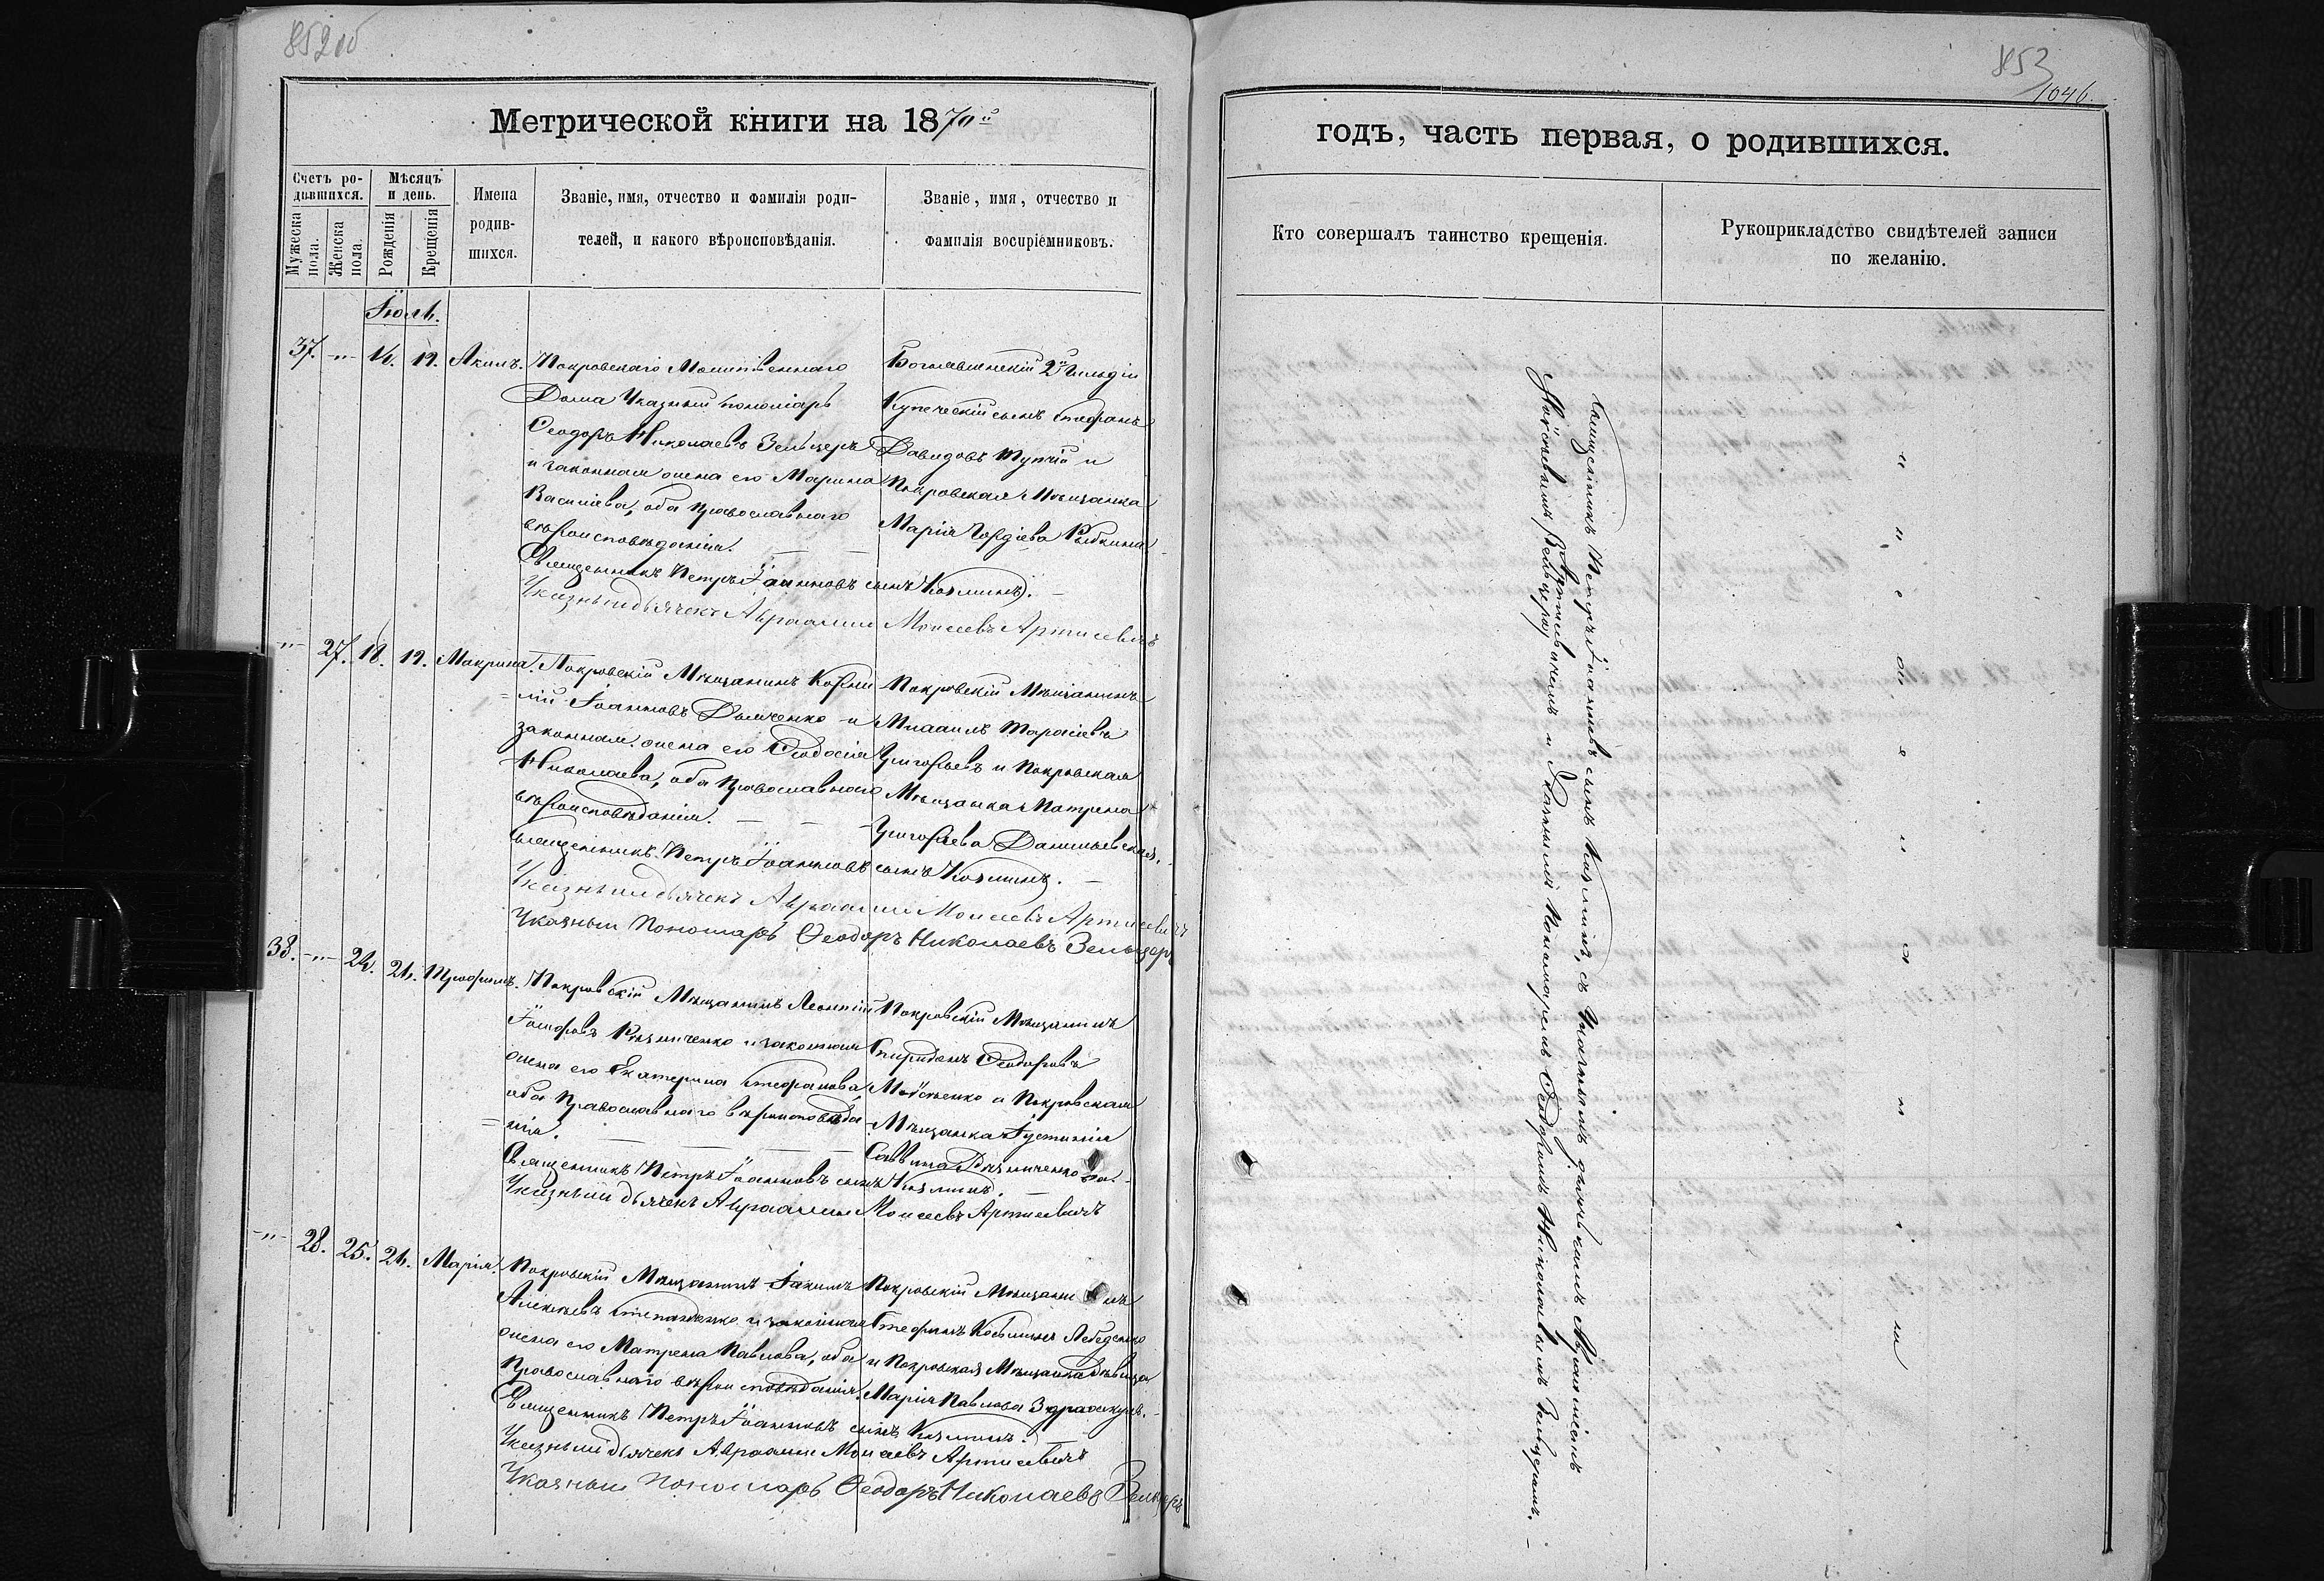 852об
853
1046.
Метрической книги на 1870й
годъ, часть первая, о родившихся.
Счетъ ро-
дившихся.
Мѣсяцъ
и день.
Мужеска пола.
Женска пола.
Рожденія
Крещенія
Имена
родив-
шихся.
Званіе, имя, отчество и фамилія роди-
телей, и какого вѣроисповѣданія.
Званіе, имя, отчество и
фамилія воспріемниковъ.
Кто совершалъ таинство крещенія.
Рукоприкладство свидѣтелей записи
по желанію.
Іюль.
37. -"- 14. 19. Акимъ.
Покровскаго Молитвеннаго
Дома Указный пономарь
Ѳеодоръ Николаевъ Зельцеръ
и законная жена его Марина
Василіева, оба Православнаго
вѣроисповѣданія.
2й Гильдіи
Купеческій сынъ Стефанъ
Давидовъ и
Покровская Мѣщанка
Марія Гордіева Рыбкина
Священникъ Петръ Іоанновъ сынъ Козминъ.
Указный дьячекъ Авраамій Моисеевъ
-"- 27. 18. 19. Макрина.
Покровскій Мѣщанинъ Корни-
лій Іоанновъ Демченко и
законная жена его Ѳеодосія
Николаева, оба Православнаго
вѣроисповѣданія.
Покровскій Мѣщанинъ
Михаилъ Тарасіевъ
Григорьевъ и Покровская
Мѣщанка Матрена
Григорьева
Священникъ Петръ Іоанновъ сынъ Козминъ.
Указный дьячекъ Авраамій Моисеевъ
Указный Пономарь Ѳеодоръ Николаевъ Зельцеръ
38. -"- 24. 24. Трофимъ.
Покровскій Мѣщанинъ Леонтій
Іосифовъ и законная
жена его Екатерина Стефанова,
оба Православнаго вѣроисповѣда-
нія.
Покровскій Мѣщанинъ
Спиридонъ Ѳеодоровъ
и Покровская
Мѣщанка Іустинія
Саввина
Священникъ Петръ Іоанновъ сынъ Козминъ.
Указный дьячекъ Авраамій Моисеевъ
-"- 28. 25. 24. Марія.
Покровскій Мѣщанинъ Іакимъ
Алексѣевъ Степаненко и законная
жена его Матрена Павлова, оба
Православнаго вѣроисповѣданія.
Покровскій Мѣщанинъ
Стефанъ Козминъ Лебеденко
и Покровская Мѣщанка дѣвица
Марія Павлова
Священникъ Петръ Іоанновъ сынъ Козминъ.
Указный дьячекъ Авраамій Моисеевъ
Указный Пономарь Ѳеодоръ Николаевъ Зельцеръ
Священникъ Петръ Іоанновъ сынъ Козминъ, съ Указнымъ дьячкомъ Аврааміемъ
и Указнымъ Пономаремъ Ѳеодоромъ Николаевымъ Зельцеромъ.